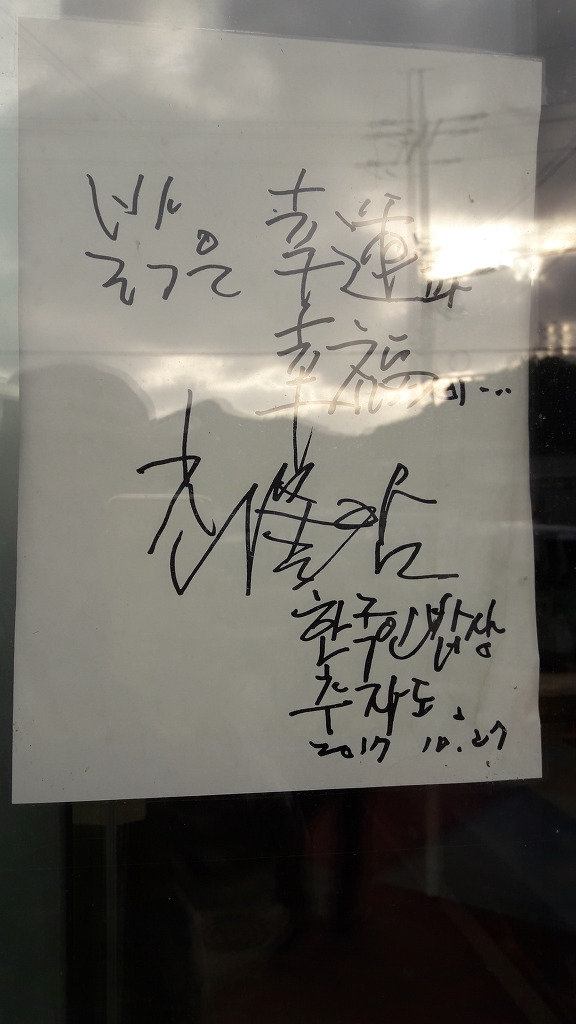 밝은 幸運과
幸福의...
최불암
한국인밥상
추자도.
2017 10.27